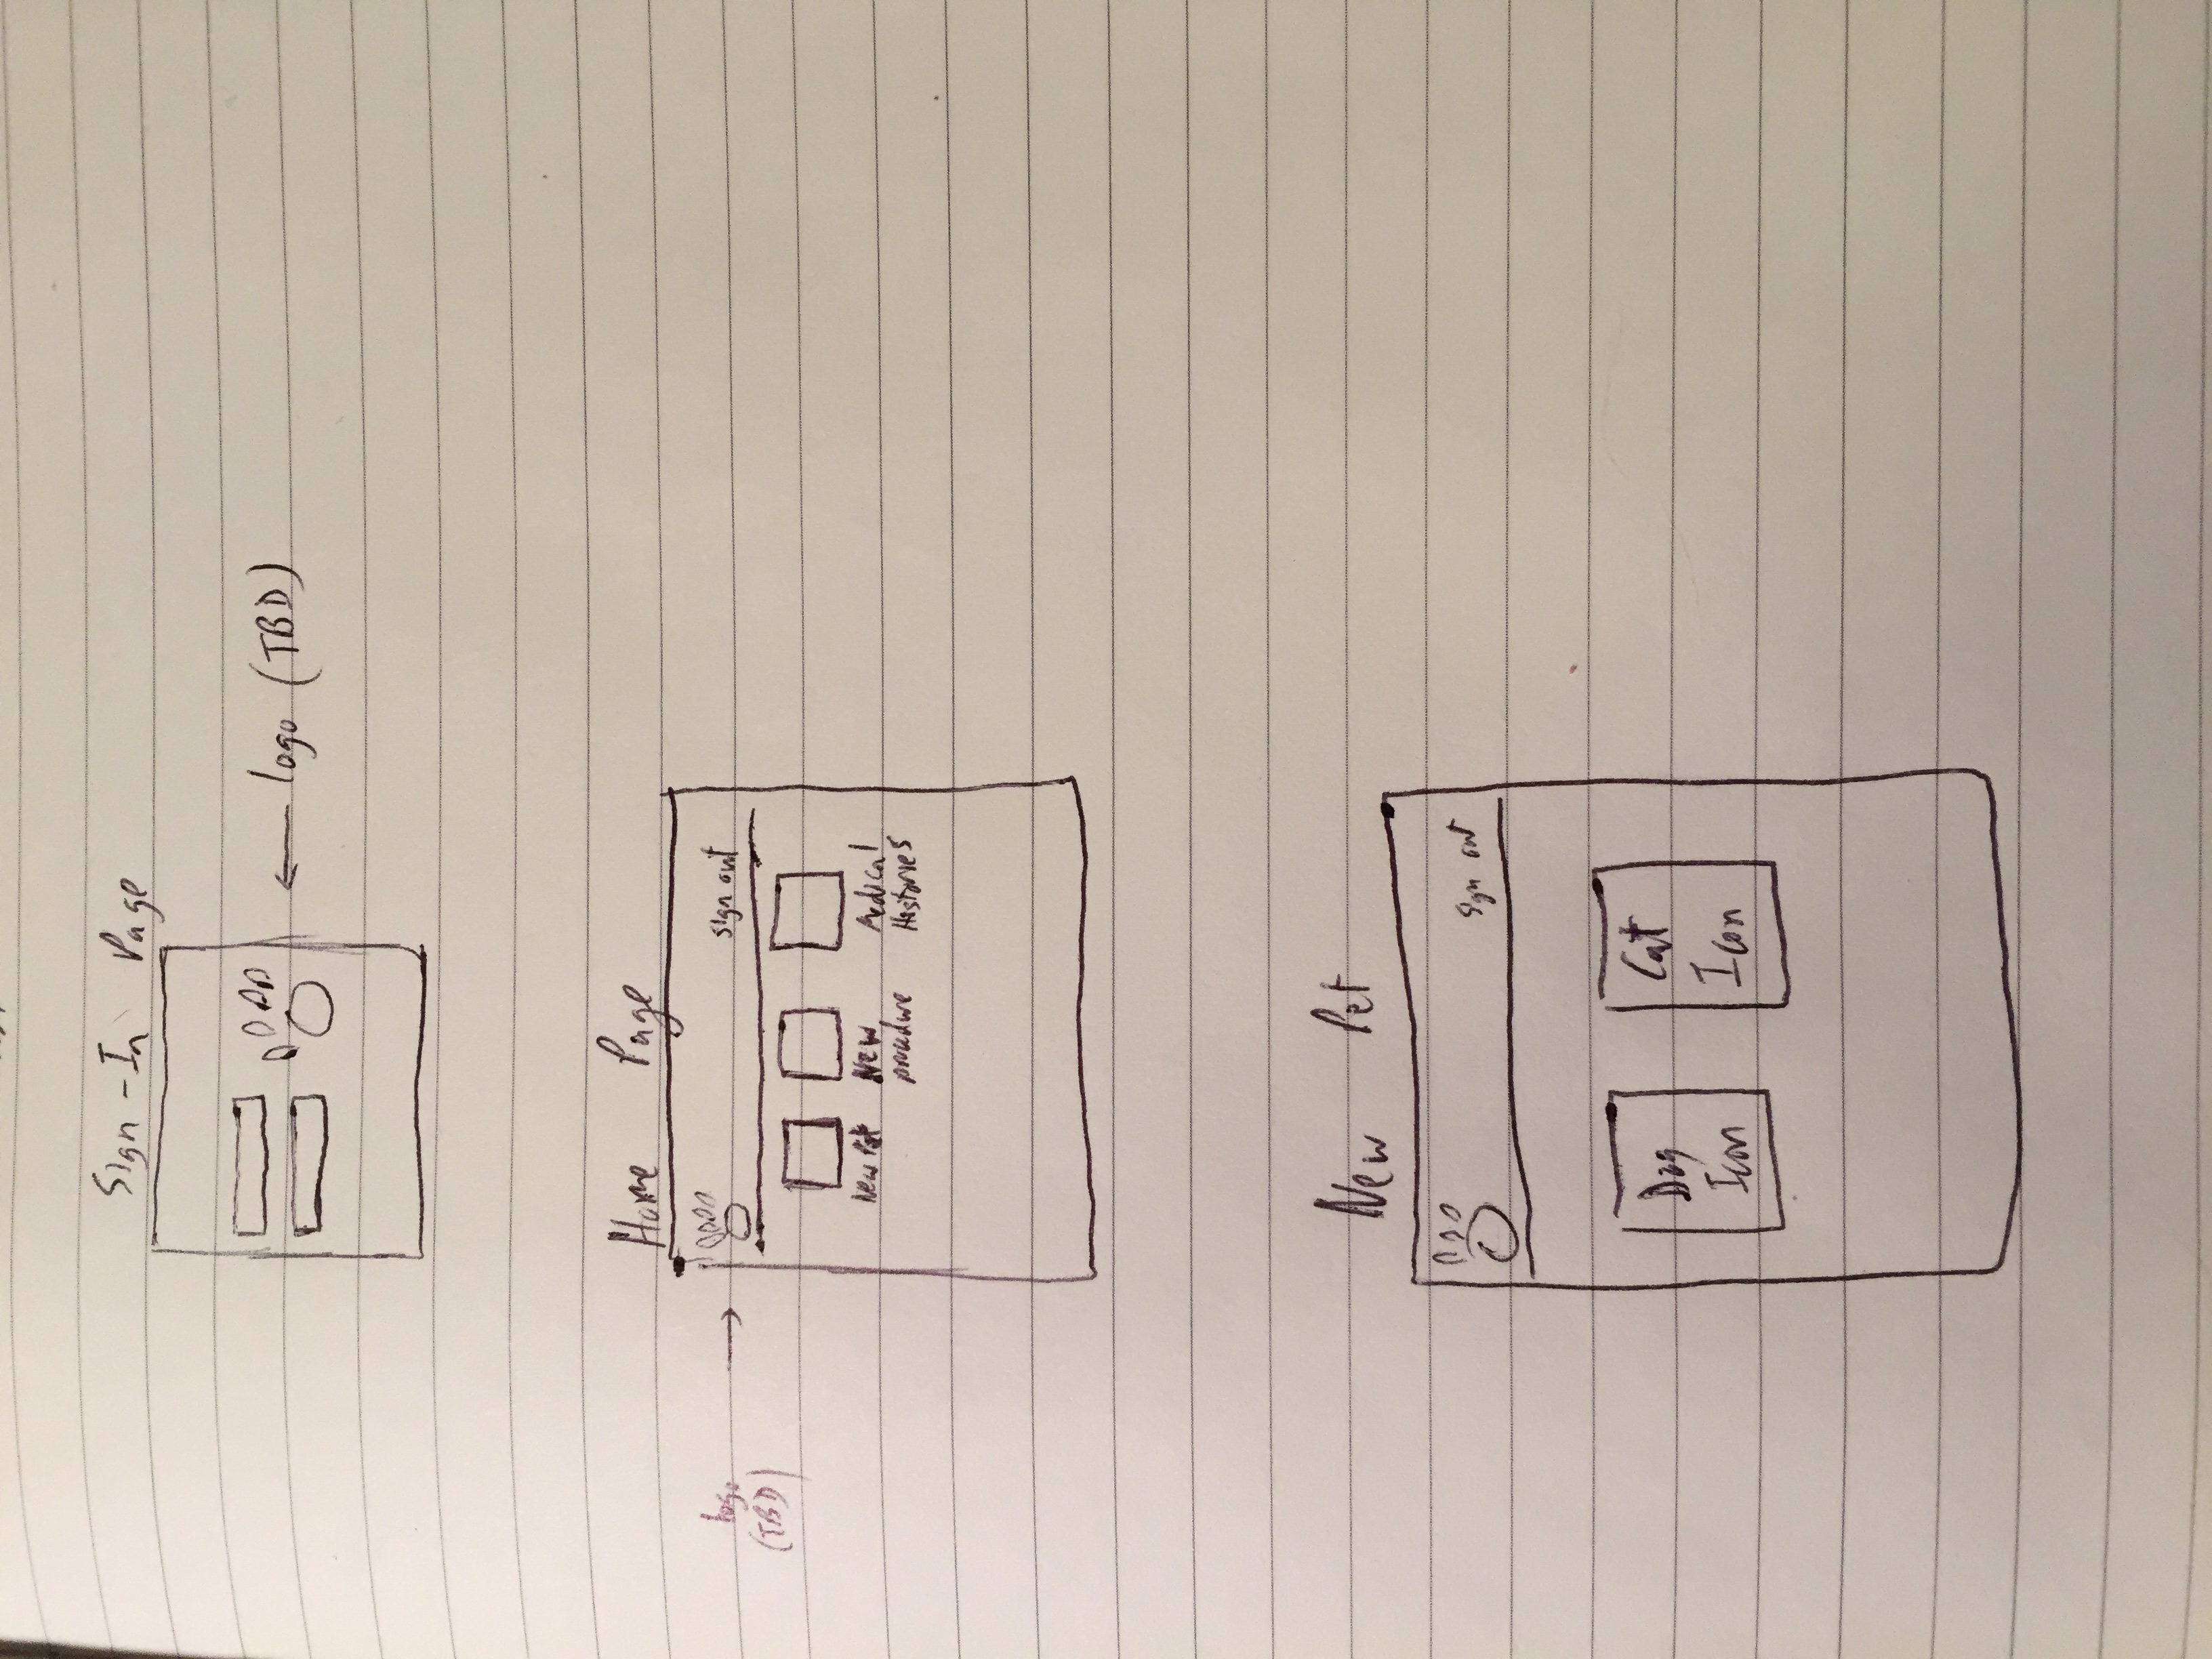 Sign-In Page
logo (TBD)
Home Page
logo
(TBD)
sign out
New Pet
New
procedure
Medical
Histories
New Pet
sign out
Dog
Icon
Cat
Icon